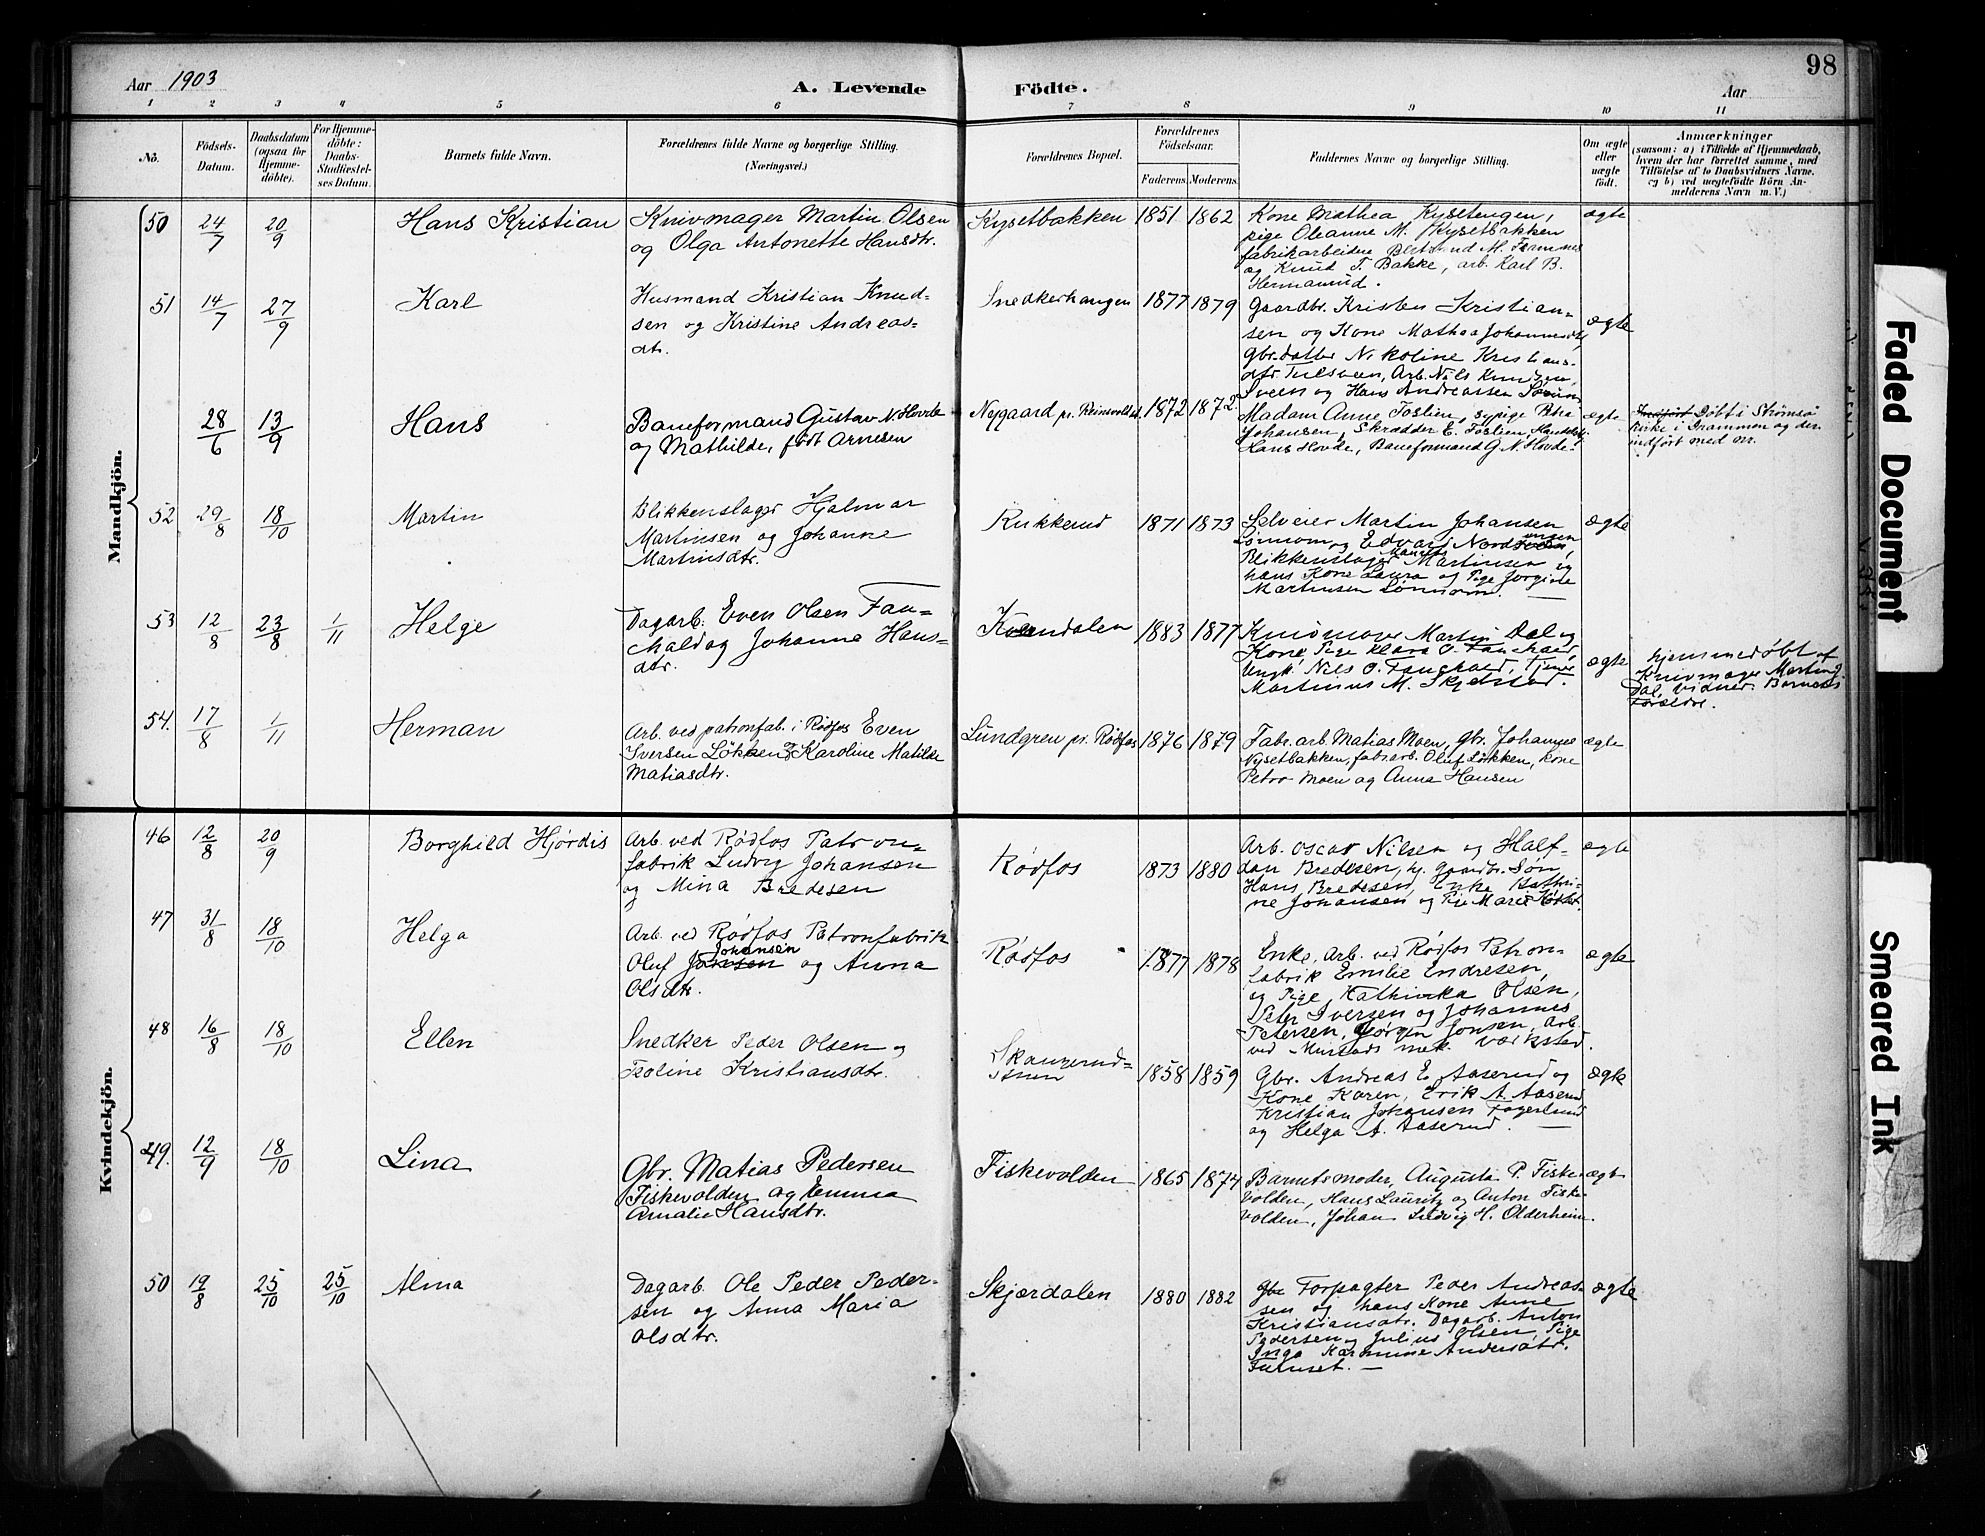 98
Aar 1903
A. Levende Födte.
Aar
1 2 3 4 5 6 7 8 9 10 11
No.
Födsels-Datum.
Daabsdatum (ogsaa for Hjemme-döbte).
For Hjemme-döbte: Daabs-Stadfæstel-ses Datum.
Barnets fulde Navn.
Forældrenes fulde Navne og borgerlige Stilling. (Næringsvei.)
Forældrenes Bopæl.
Forældrenes Födselsaar.
Faderens. Moderens.
Faddernes Navne og borgerlige Stilling.
Om ægte eller uægte födt.
Anmærkninger
(saasom: a) i Tilfælde af Hjemmedaab, hvem der har forrettet samme, med Tilföielse af to Daabsvidners Navne. og b) ved uægtefödte Börn Anmelderens Navn m. V.)
Mandkjön.
50 24/7 20/9 Hans Kristian
Knivmager Martin Olsen
og Olga Antonette Hansdtr.
Kysetbakken 1851 1862
Kone Mathea Kysetengen,
pige Oleanne M. Kysetbakken
fabrikarbeidere M.
og Knud T. Bakke, arb. Karl B.
Hermanrud.
ægte
51 14/7 27/9 Karl
Husmand Kristian Knud-
sen og Kristine Andreas-
dtr.
Snedkerhaugen 1877 1879
Gaardbr. Kristen Kristian-
sen og Kone Mathea Johannesdtr,
Gbr.datter Nikoline Kristians-
dtr Arb. Nils Knudsen
Sveen og Hans Andreassen
ægte
28/6 13/9 Hans
Baneformand Gustav N. Hovde
og Mathilde, født Arnesen
Nygaard pr. Reinsvold st. 1872 1872
Madam Anne Foslien, sypige Petra
Johansen, Skrædder E. Foslien
Hans Hovde, Baneformand G. N. Hovde
ægte
Indført Døbt i Strømsø
Kirke i Drammen og der
indført med nr.
52 29/8 18/10 Martin
Blikkenslager Hjalmar
Martinsen og Johanne
Martinsdtr.
Rukkerud 1871 1873
Selveier Martin Johansen
Sønnom og Edvard
Blikkenslager Martinsen og
hans Kone Laura og Pige Jorgine
Martinsen Sønnom.
ægte
53 12/8 23/8 1/11 Helge
Dagarb. Even Olsen Fau-
chald og Johanne Hans-
dtr.
Korndalen 1883 1877
Knivmager Martin Dal og
Kone, Pige Klara O. Fauchald,
Ungk. Nils O. Fauchald, Tjener
Martinus M. Skjelstad.
ægte
hjemmedøbt af
Knivmager Martin
Dal, vidner Barnets
Forældre.
54. 17/8 1/11 Herman
Arb. ved patronfab. i Rødfos Even
Iversen Løkken og Karoline Matilde
Matiasdtr.
Lundgren pr. Rødfos 1876 1879
Fabr. arb. Matias Moen, gbr. Johannes
Nysetbakken, fabr.arb. Oluf Løkken, kone
Petra Moen og Anna Hansen
ægte
Kvindekjön.
46 12/8 20/9 Borghild Hjørdis
Arb. ved Rødfos Patron-
fabrik Ludvig Johansen
og Mina Bredesen
Rødfos 1873 1880
Arb. Oscar Nilsen og Half-
dan Bredesen, Gaardbr. Søn
Hans Bredesen, Enke Kathri-
ne Johansen og Pige Marie
ægte
47 31/8 18/10 Helga
Arb. ved Rødfos Patronfabrik
Oluf Jansen Johansen og Anna
Olsdtr.
Rødfos 1877 1878
Enke, Arb. ved Rødfos Patron-
fabrik Emilie Endresen,
og Pige Kathinka Olsen,
Peter Iversen og Johannes
Petersen, Jørgen Jonsen, Arb.
ved Mustads mek. Værksted.
ægte
48 16/8 18/10 Ellen
Snedker Peder Olsen og
Kristiansdtr.
1858 1859
Gbr. Andreas E. Aaserud og
Kone Karen, Erik A. Aaserud
Kristian Johansen Fagerlund
og Helga A. Aaserud.
ægte
49. 12/9 18/10 Lina
Gbr. Matias Pedersen
Fiskevolden og Emma
Amalie Hansdtr.
Fiskevolden 1865 1874
Barnets moder, Augusta P. Fiske-
volden, Hans Lauritz og Anton Fiske-
volden, Johan Ludvig H. Olderheim.
ægte
50 19/8 25/10 25/10 Alma
Dagarb. Ole Peder Peder-
sen og Anna Maria
Olsdtr.
Skjærdalen 1880 1882
Gbr Forpagter Peder Andreas-
sen og hans Kone Anne
Kristiansdtr. Dagarb. Anton
Pedersen og Julius Olsen, Pige
Inga Karoline Andersdtr.
Furuset.
ægte
Faded Document
Smeared Ink